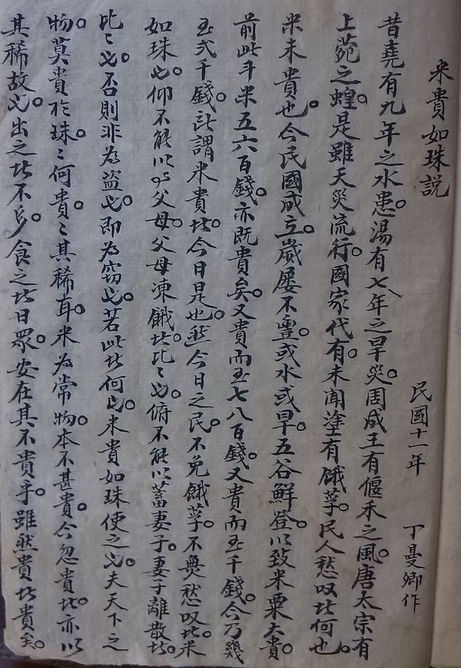 米貴如珠説
民國十一年 丁曼卿作
昔堯有九年之水患湯有七年之旱災周成王有偃禾之風唐太宗有
上苑之蝗是雖天災流行國家代有未聞塗有餓莩民人愁叹者何也
米未貴也今民國成立嵗屢不豊或水或旱五谷鮮登以致米粟大貴
前此斗米五六百錢亦既貴矣又貴而至七八百錢又貴而至千錢今乃幾
至弍千錢所謂米貴者今日是也然今日之民不免餓莩不興愁叹者米
如珠也仰不能以事父母父母凍餓者比比也俯不能以蓄妻子妻子離散者
比比也否則非為盜也即為窃也若此者何也米貴如珠使之也夫天下之
物莫貴於珠珠何貴貴其稀耳米為常物本不甚貴今忽貴者亦以
其稀故也出之者不多食之者日眾安在其不貴乎雖然貴者貴矣